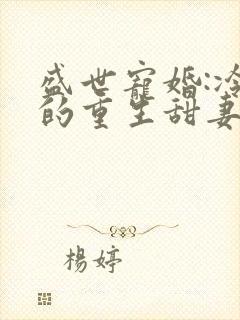 盛世寵婚:冷
的重生甜妻
楊婷